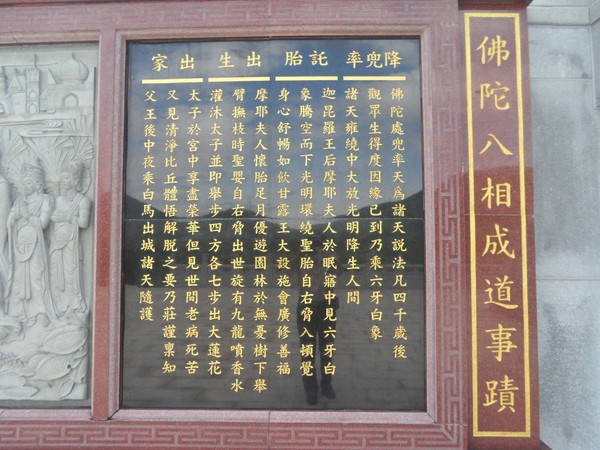 佛陀八相成道事蹟
降兜率
佛陀處兜率天為諸天說法凡四千歲後
觀眾生得度因緣已到乃乘六牙白象
諸天雍繞中大放光明降生人間
託胎
迦昆羅王后摩耶夫人於眠寤中見六牙白
象騰空而下光明環繞聖胎自右脅入頓覺
身心舒暢如飲甘露王大設施會廣修善福
出生
摩耶夫人懷胎足月優遊園林於無憂樹下舉
臂撫枝時聖嬰自右脅出世旋有九龍噴香水
灌沐太子並即舉步四方各七步出大蓮花
出家
太子於宮中享盡榮華但見世間老病死苦
又見清淨比丘體悟解脫之要乃莊謹稟知
父王後中夜乘白馬出城諸天隨護